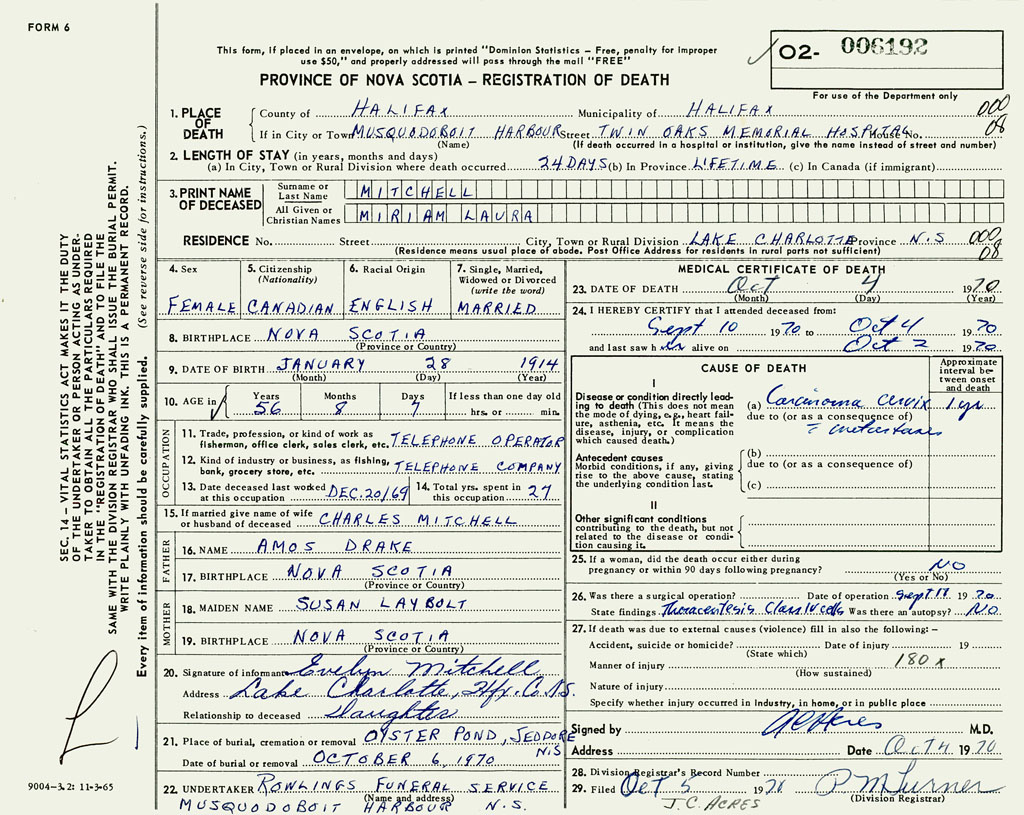 FORM 6
This form, if placed in an envelope, on which is printed "Dominion Statistics – Free, penalty for improper
use $50," and properly addressed will pass through the mail "FREE"
02- 006192
For use of the Department only
PROVINCE OF NOVA SCOTIA – REGISTRATION OF DEATH
1. PLACE OF DEATH
County of HALIFAX Municipality of HALIFAX 000
If in City or Town MUSQUODOBOIT HARBOUR Street TWIN OAKS MEMORIAL HOSPITAL House No. 08
(Name) (If death occurred in a hospital or institution, give the name instead of street and number)
2. LENGTH OF STAY (in years, months and days)
(a) In City, Town or Rural Division where death occurred 24 DAYS (b) In Province LIFETIME (c) In Canada (if immigrant)
3. PRINT NAME OF DECEASED
Surname or Last Name MITCHELL
All Given or Christian Names MIRIAM LAURA
RESIDENCE No. Street City, Town or Rural Division LAKE CHARLOTTE Province N.S 000
08
(Residence means usual place of abode. Post Office Address for residents in rural parts not sufficient)
4. Sex
FEMALE
5. Citizenship
(Nationality)
CANADIAN
6. Racial Origin
ENGLISH
7. Single, Married,
Widowed or Divorced
(write the word)
MARRIED
8. BIRTHPLACE NOVA SCOTIA
(Province or Country)
9. DATE OF BIRTH JANUARY 28 1914
(Month) (Day) (Year)
10. AGE in
Years Months Days If less than one day old
56 8 7 hrs. or min.
OCCUPATION
11. Trade, profession, or kind of work as
fisherman, office clerk, sales clerk, etc. TELEPHONE OPERATOR
12. Kind of industry or business, as fishing,
bank, grocery store, etc. TELEPHONE COMPANY
13. Date deceased last worked
at this occupation DEC. 20/69
14. Total yrs. spent in
this occupation 27
15. If married give name of wife
or husband of deceased CHARLES MITCHELL
FATHER
16. NAME AMOS DRAKE
17. BIRTHPLACE NOVA SCOTIA
(Province or Country)
MOTHER
18. MAIDEN NAME SUSAN LAYBOLT
19. BIRTHPLACE NOVA SCOTIA
(Province or Country)
20. Signature of informant Evelyn Mitchell
Address Lake Charlotte, Hfx. Co. N.S.
Relationship to deceased Daughter
21. Place of burial, cremation or removal OYSTER POND, JEDDORE
N.S
Date of burial or removal OCTOBER 6, 1970
22. UNDERTAKER ROWLINGS FUNERAL SERVICE
(Name and address)
MUSQUODOBOIT HARBOUR N.S.
MEDICAL CERTIFICATE OF DEATH
23. DATE OF DEATH Oct 4 1970
(Month) (Day) (Year)
24. I HEREBY CERTIFY that I attended deceased from:
Sept 10 1970 to Oct 4 1970
and last saw her alive on Oct 2 1970
CAUSE OF DEATH
Approximate
interval be-
tween onset
and death
I
Disease or condition directly lead-
ing to death (This does not mean
the mode of dying, e.g., heart fail-
ure, asthenia, etc. It means the
disease, injury, or complication
which caused death.)
(a) Carcinoma Cervix 1 yr
due to (or as a consequence of)
metastases
Antecedent causes
Morbid conditions, if any, giving
rise to the above cause, stating
the underlying condition last.
(b)
due to (or as a consequence of)
(c)
II
Other significant conditions
contributing to the death, but not
related to the disease or condi-
tion causing it.
25. If a woman, did the death occur either during
pregnancy or within 90 days following pregnancy? NO
(Yes or No)
26. Was there a surgical operation? Date of operation Sept 18 1970
State findings Thoracentesis Class IV cells Was there an autopsy? NO
27. If death was due to external causes (violence) fill in also the following: –
Accident, suicide or homicide? Date of injury 19
(State which)
Manner of injury 180 x
(How sustained)
Nature of injury
Specify whether injury occurred in industry, in home, or in public place
Signed by M.D.
Address Date Oct 4 1970
28. Division Registrar's Record Number
29. Filed Oct 5 1970 P M Turner
(Division Registrar)
J.C. ACRES
SEC. 14 – VITAL STATISTICS ACT MAKES IT THE DUTY
OF THE UNDERTAKER OR PERSON ACTING AS UNDER-
TAKER TO OBTAIN ALL THE PARTICULARS REQUIRED
IN THE "REGISTRATION OF DEATH" AND TO FILE THE
SAME WITH THE DIVISION REGISTRAR WHO SHALL ISSUE THE BURIAL PERMIT.
WRITE PLAINLY WITH UNFADING INK. THIS IS A PERMANENT RECORD.
Every item of information should be carefully supplied. (See reverse side for instructions.)
9004-3.2: 11-3-65